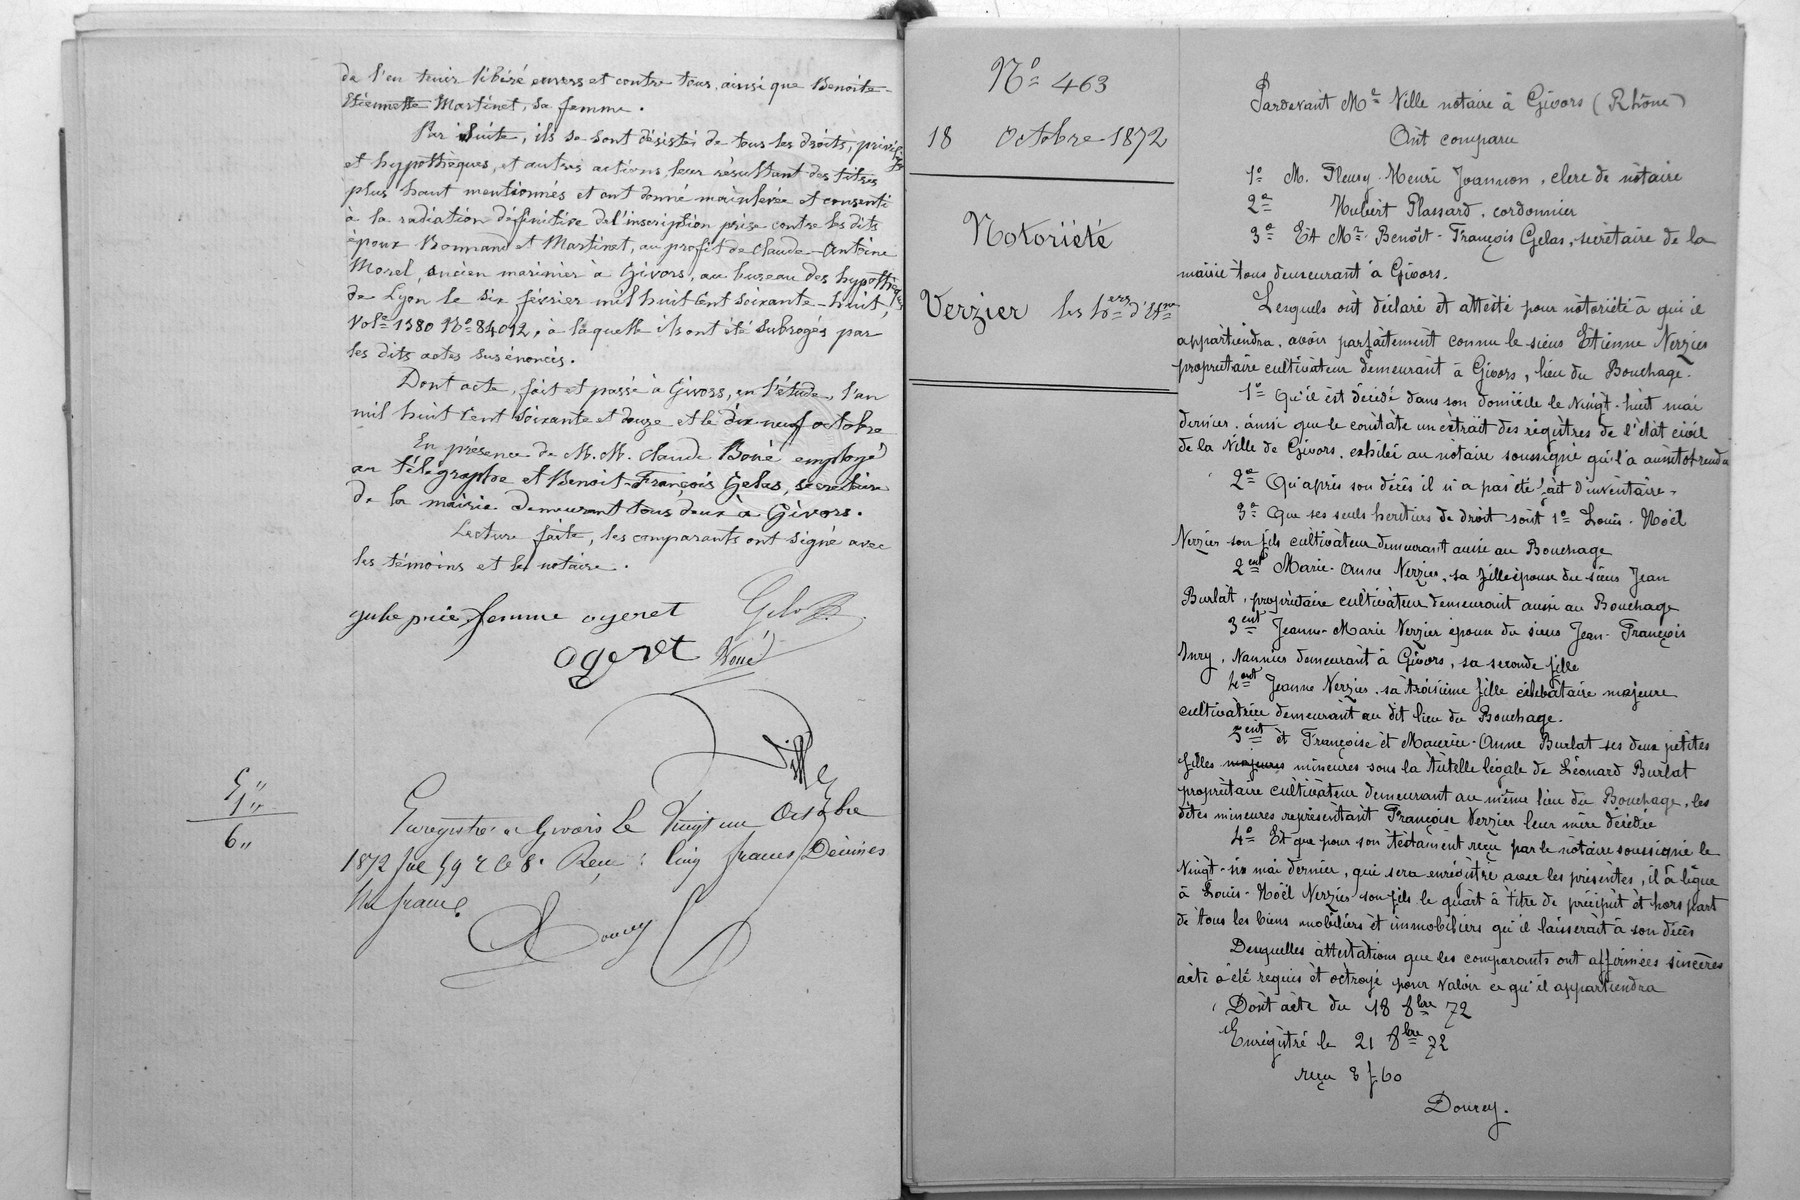 de l'en tenir libéré envers et contre tous, ainsi que Benoîte-
Etiennette Martinet, sa femme.
Par Suite, ils se sont désisté de tous les droits, privilèges
et hypothèques, et autres actions leur résultant des titres
plus haut mentionnés et ont donné mainlevée et consenti
à la radiation définitive de l'inscription prise contre les dits
époux Bonnand et Martinet, au profit de Claude-Antoine
Morel, ancien marinier à Givors, au bureau des hypothèques
de Lyon le six février mil huit cent soixante-huit,
Vol. 1380 No 84012, à laquelle ils ont été subrogés par
les dits actes susénoncés.
Dont acte, fait et passé à Givors, en l'étude, l'an
mil huit cent soixante et douze et le dix neuf octobre
En présence de M.M. Claude Boné employé
au télégraphe et Benoit-François Gelas, secrétaire
de la mairie demeurant tous deux à Givors.
Lecture faite, les comparants ont signé avec
les témoins et le notaire.
femme ogeret Gelas
ogeret Boné
Ville
5 "
1 "
6 "
Enregistré à Givors le Vingt un Octobre
1872 fol 59 r C 8. Reçu : Cinq francs, Décimes
Un franc.
Dourey
No 463
18 Octobre 1872
Notoriété
Verzier les hers d'Etne
Pardevant Me Ville notaire à Givors (Rhône)
Ont comparu
1o M. Fleury-Henri Joannon, clerc de notaire
2o Hubert Plassard, cordonnier
3o Et Mr Benoît-François Gelas, secrétaire de la
mairie tous demeurant à Givors.
Lesquels ont déclaré et attesté pour notoriété à qui il
appartiendra, avoir parfaitement connu le sieur Etienne Verzier
propriétaire cultivateur demeurant à Givors, lieu du Bouchage.
1o Qu'il est décédé dans son domicile le Vingt-huit mai
dernier, ainsi que le constate un extrait des registres de l'état civil
de la Ville de Givors, exhibé au notaire soussigné qu'il a aussitôt rendu
2o Qu'après son décès il n'a pas été fait d'inventaire.
3o Que ses seuls héritiers de droit sont 1o Louis-Noël
Verzier son fils cultivateur demeurant aussi au Bouchage
2ent Marie-Anne Verzier, sa fille épouse du sieur Jean
Burlat, propriétaire cultivateur demeurant aussi au Bouchage
3ent Jeanne-Marie Verzier épouse du sieur Jean-François
Inry, Vannier demeurant à Givors, sa seconde fille
4ent Jeanne Verzier, sa troisième fille célibataire majeure
cultivatrice demeurant au dit lieu du Bouchage.
5ent et Françoise et Maurice-Anne Burlat ses deux petites
filles majeures mineures sous la tutelle légale de Léonard Burlat
propriétaire cultivateur demeurant au même lieu du Bouchage, les
dites mineures représentant Françoise Verzier leur mère décédée
4o Et que pour son testament reçu par le notaire soussigné le
Vingt-six mai dernier, qui sera enregistré avec les présentes, il a légué
à Louis-Noël Verzier son fils le quart à titre de préciput et hors part
de tous les biens mobiliers et immobiliers qu'il laisserait à son décès
Desquelles attestations que les comparants ont affirmées sincères
acte a été requis et octroyé pour valoir ce qu'il appartiendra
Dont acte du 18 8bre 72
Enregistré le 21 8bre 72
reçu 8 f. 60
Dourey.